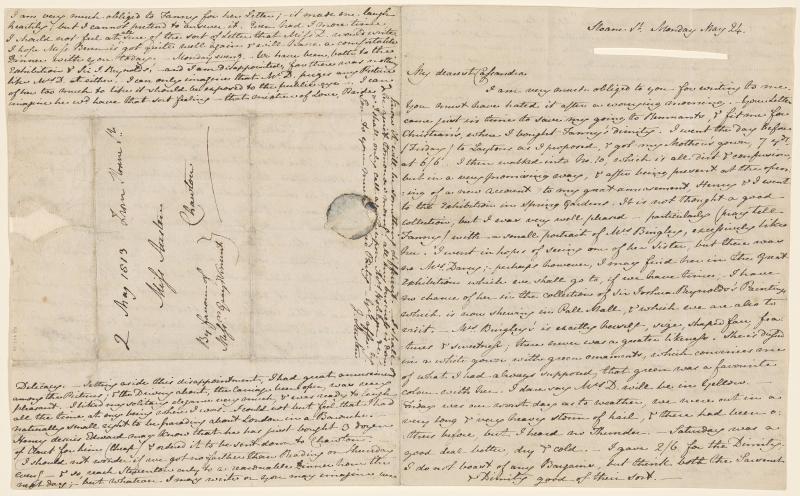 Sloane St. Monday May 24.
My dearest Cassandra
I am very much obliged to you for writing to me.
You must have hated it after a worrying morning. Your Letter
came just in time to save my going to Remnants, & fit me for
Christian's, where I bought Fanny's dimity. I went the day before
(Friday) to Laytons as I proposed, & got my Mother's gown, 7 yds
at 6/6. I then walked into No. 10, which is all dirt & confusion,
but in a very promising way, & after being present at the open-
ing of a new account to my great amusement, Henry & I went
to the Exhibition in Spring Gardens. It is not thought a good
collection, but I was very well pleased - particularly (pray tell
Fanny) with a small portrait of Mrs Bingley, excessively like
her. I went in hopes of seeing one of her Sister, but there was
no Mrs Darcy; - perhaps however, I may find her in the Great
Exhibition which we shall go to, if we have time; - I have
no chance of her in the collection of Sir Joshua Reynolds's Paintings
which is now shewing in Pall Mall, & which we are also to
visit. - Mrs Bingley's is exactly herself, size, shaped face, fea-
tures & sweetness; there never was a greater likeness. She is dressed
in a white gown, with green ornaments, which convinces me
of what I had always supposed, that green was a favourite
colour with her. I dare say Mrs D. will be in Yellow.
Friday was our worst day as to weather, we were out in a
very long & very heavy storm of hail, & there had been o-
thers before, but I heard no Thunder. - Saturday was a
good deal better, dry & cold. - I gave 2/6 for the Dimity.
I do not boast of any Bargains, but think both the Sarsenet
& Dimity good of their sort. -
I am very much obliged to Fanny for her Letter; - it made me laugh
heartily; but I cannot pretend to answer it. Even had I more time,
I should not feel at all sure of the sort of Letter that Miss D. would write.
I hope Miss Benn is got quite well again & will have a comfortable
Dinner with you today. - Monday eveng. - We have been both to the
Exhibition & Sir J. Reynolds', - and I am disappointed, for there was nothing
like Mrs D. at either. I can only imagine that Mr D. prizes any Picture
of her too much to like it should be exposed to the public eye. - I can
imagine he wd have that sort feeling - that mixture of Love, Pride &
Delicacy. - Setting aside this disappointment, I had great amusement
among the Pictures; & the Driving about, the Carriage been open, was very
pleasant. - I liked my solitary elegance very much, & was ready to laugh
all the time, at my being where I was. - I could not but feel that I had
naturally small right to be parading about London in a Barouche. -
Henry desires Edward may know that he has just bought 3 dozen
of Claret for him (Cheap) & ordered it to be sent down to Chawton. -
I should not wonder if we got no farther than Reading on Thursday
eveng - & so, reach Steventon only to a reasonable Dinner hour the
next day; - but whatever I may write or you may imagine we
2 May 1813 from Sloane St.
Miss Austen
Chawton
By favour of
Messrs Gray & Vincent
J. Austen